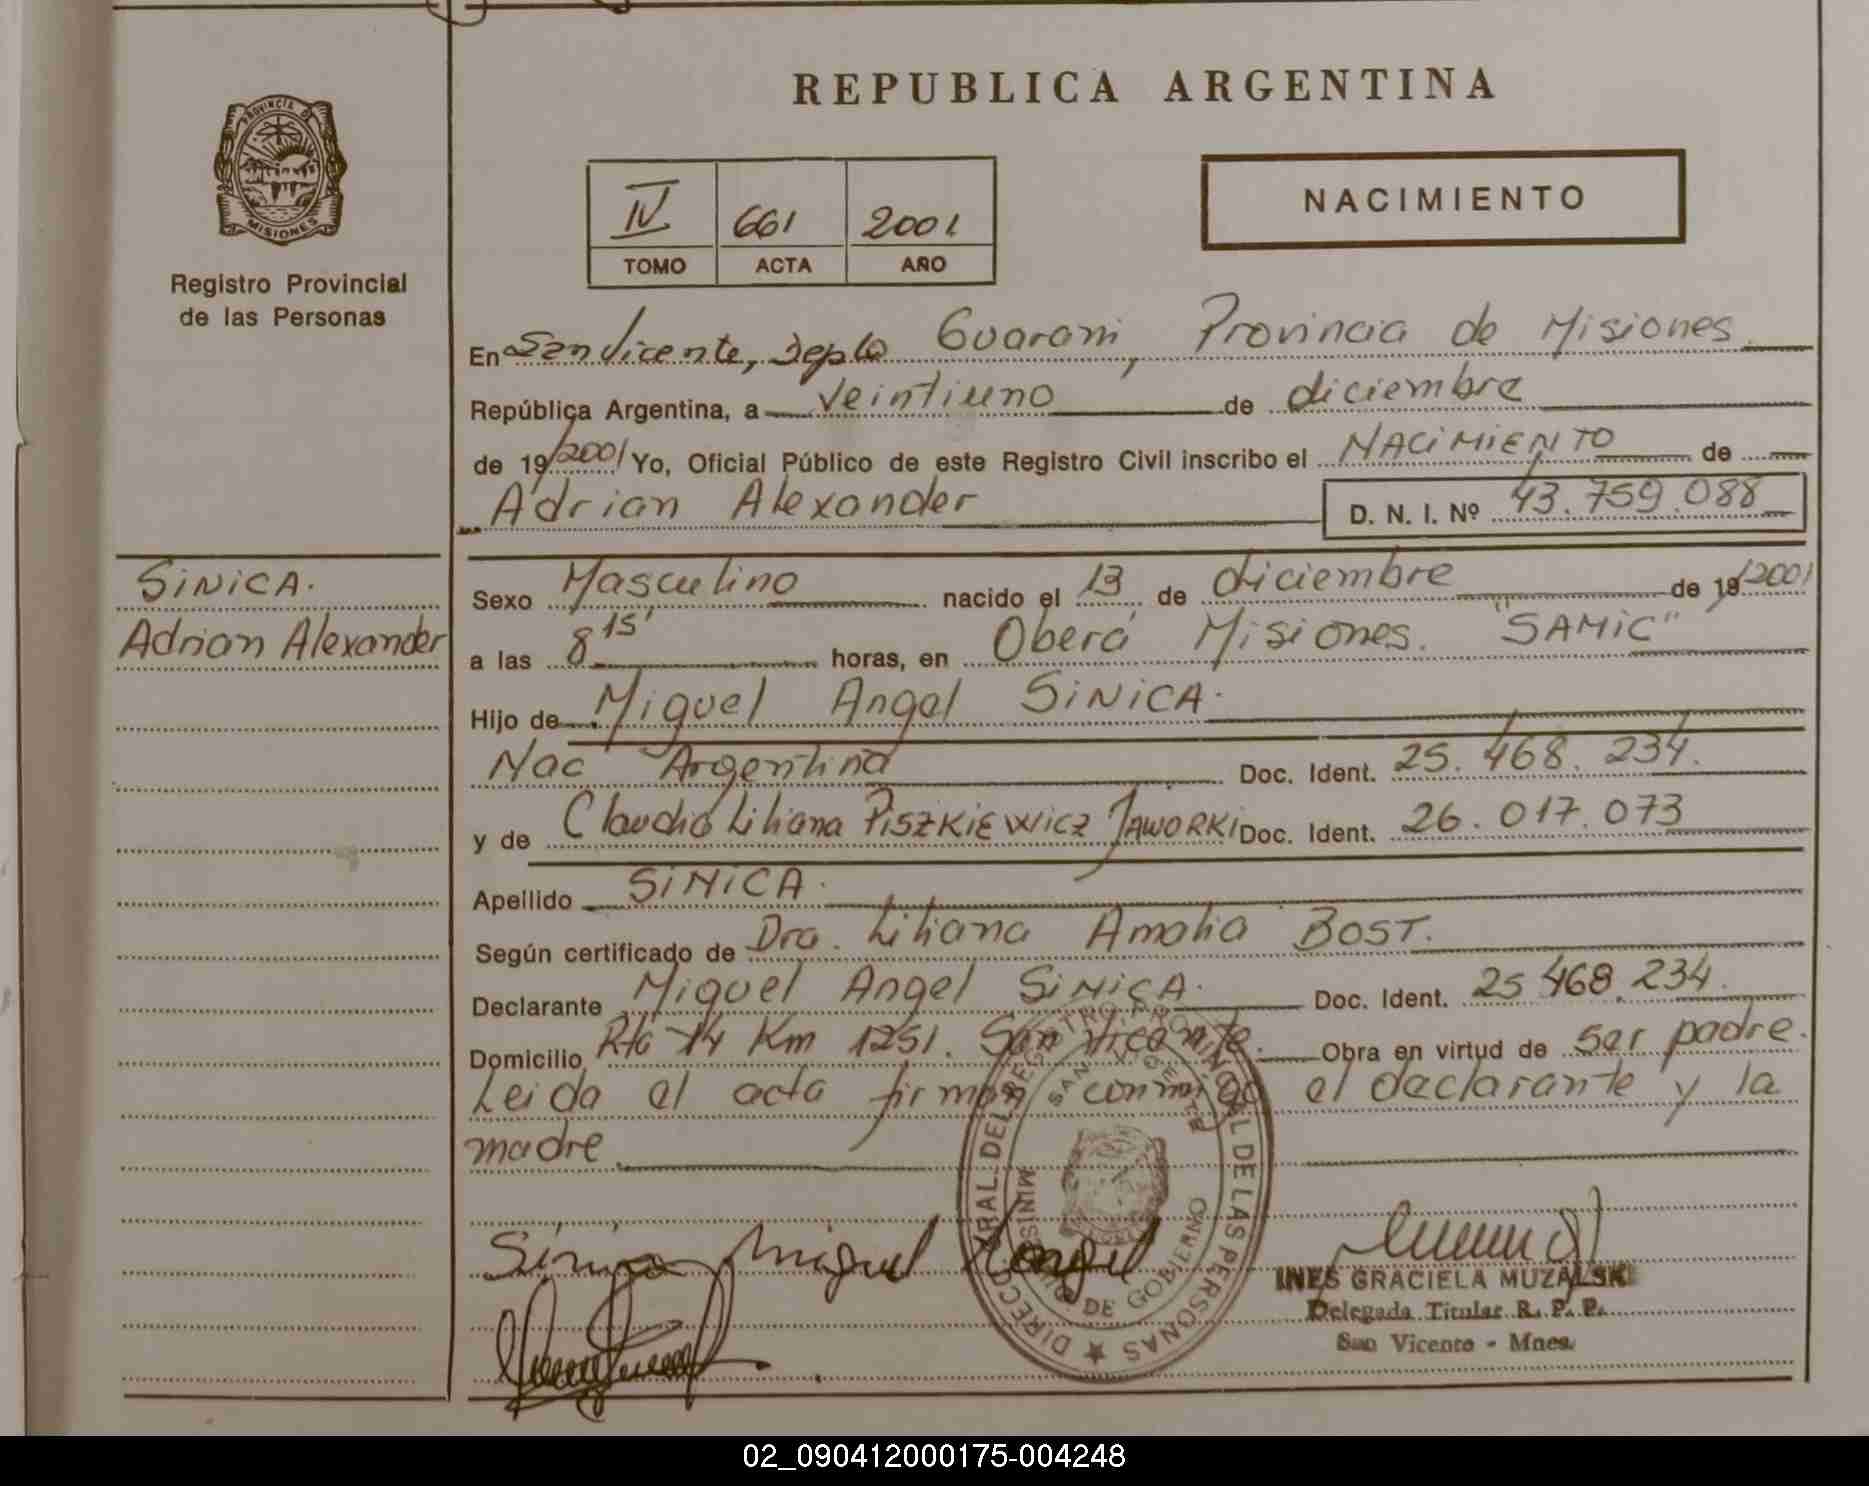 REPUBLICA ARGENTINA
PROVINCIA DE
MISIONES
Registro Provincial
de las Personas
IV 661 2001
TOMO ACTA AÑO
NACIMIENTO
En San Vicente, Depto Guarani, Provincia de Misiones
República Argentina, a veintiuno de diciembre
de 19/2001 Yo, Oficial Público de este Registro Civil inscribo el NACIMIENTO de
Adrian Alexander D. N. I. Nº 43.759.088
SINICA.
Adrian Alexander
Sexo Masculino nacido el 13 de diciembre de 19/2001
a las 8 15' horas, en Oberá Misiones. "SAMIC"
Hijo de Miguel Angel SINICA.
Nac Argentina Doc. Ident. 25.468.234.
y de Claudia Liliana PISZKIEWICZ JAWORKI Doc. Ident. 26.017.073
Apellido SINICA.
Según certificado de Dra. Liliana Amalia BOST.
Declarante Miguel Angel SINICA. Doc. Ident. 25 468.234.
Domicilio Rta 14 Km 1251. San Vicente. Obra en virtud de ser padre.
Leida el acta firman conmigo el declarante y la
madre
Sinica Miguel Angel
DIRECC. GRAL. DEL REGISTRO PROVINCIAL DE LAS PERSONAS
SAN VICENTE
MINISTERIO DE GOBIERNO
INES GRACIELA MUZALSKI
Delegada Titular R. P. P.
San Vicente - Mnes.
02_090412000175-004248